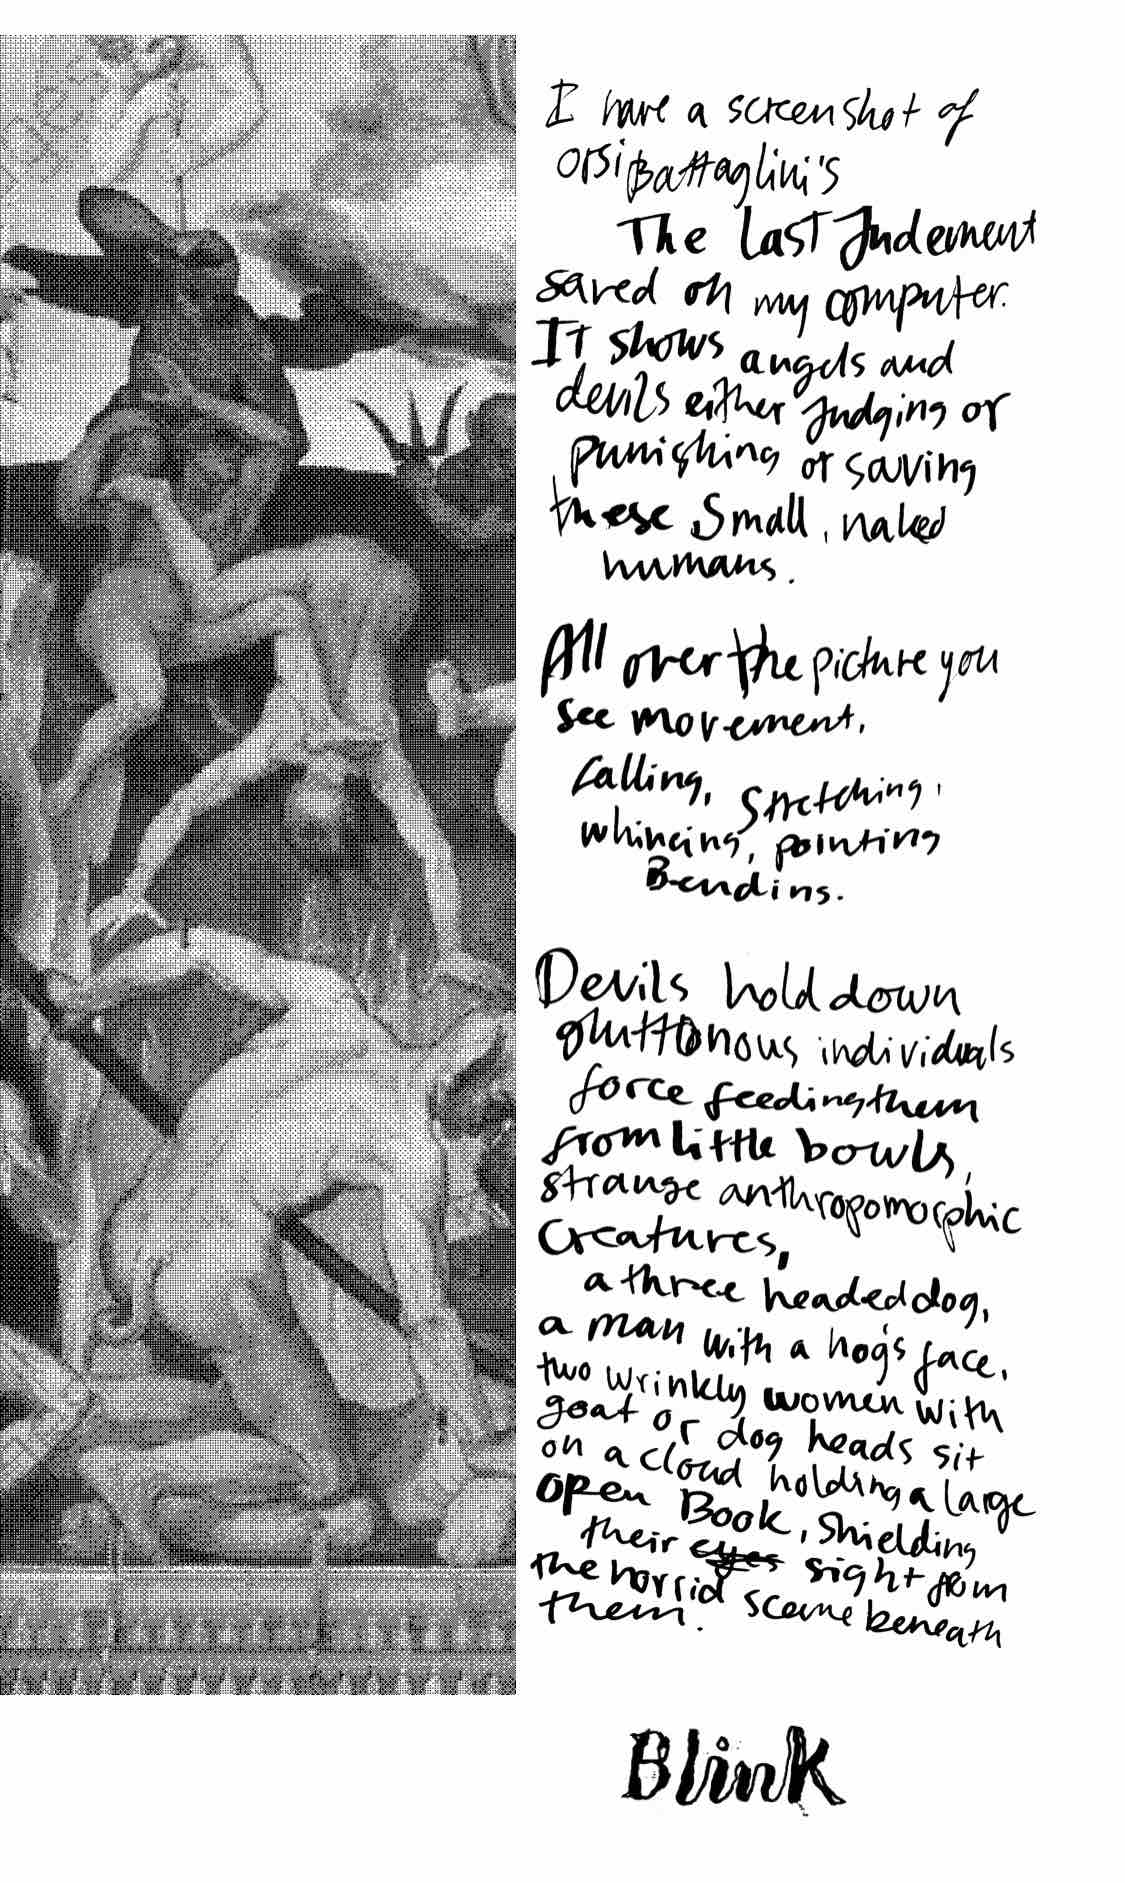 I have a screenshot of
Orsi Battaglini's
The Last Judement
saved on my computer.
It shows angels and
devils either Judging or
punishing or saving
these small, naked
humans.
All over the picture you
see movement,
falling, stretching,
whincing, pointing
Bending.
Devils hold down
gluttonous individuals
force feeding them
from little bowls,
strange anthropomorphic
creatures,
a three headed dog,
a man with a hog's face,
two wrinkly women with
goat or dog heads sit
on a cloud holding a large
open Book, shielding
their eyes sight from
the horrid scene beneath
them.
Blink